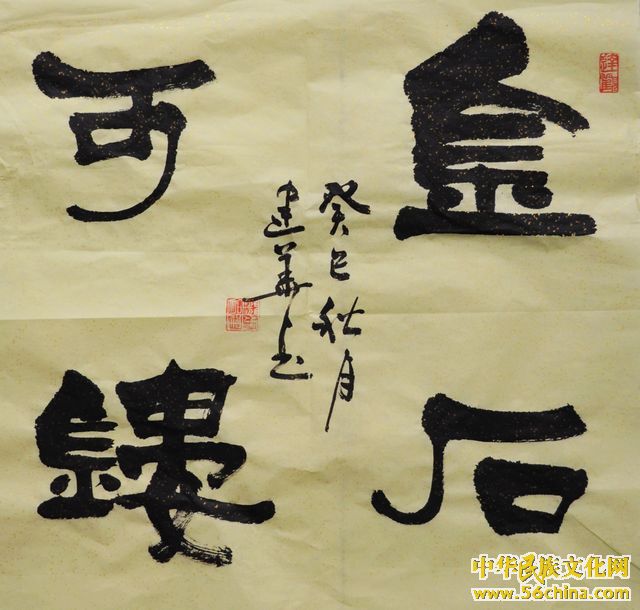 金石
可鏤
癸巳秋月
建華書
中华民族文化网
www.56china.com